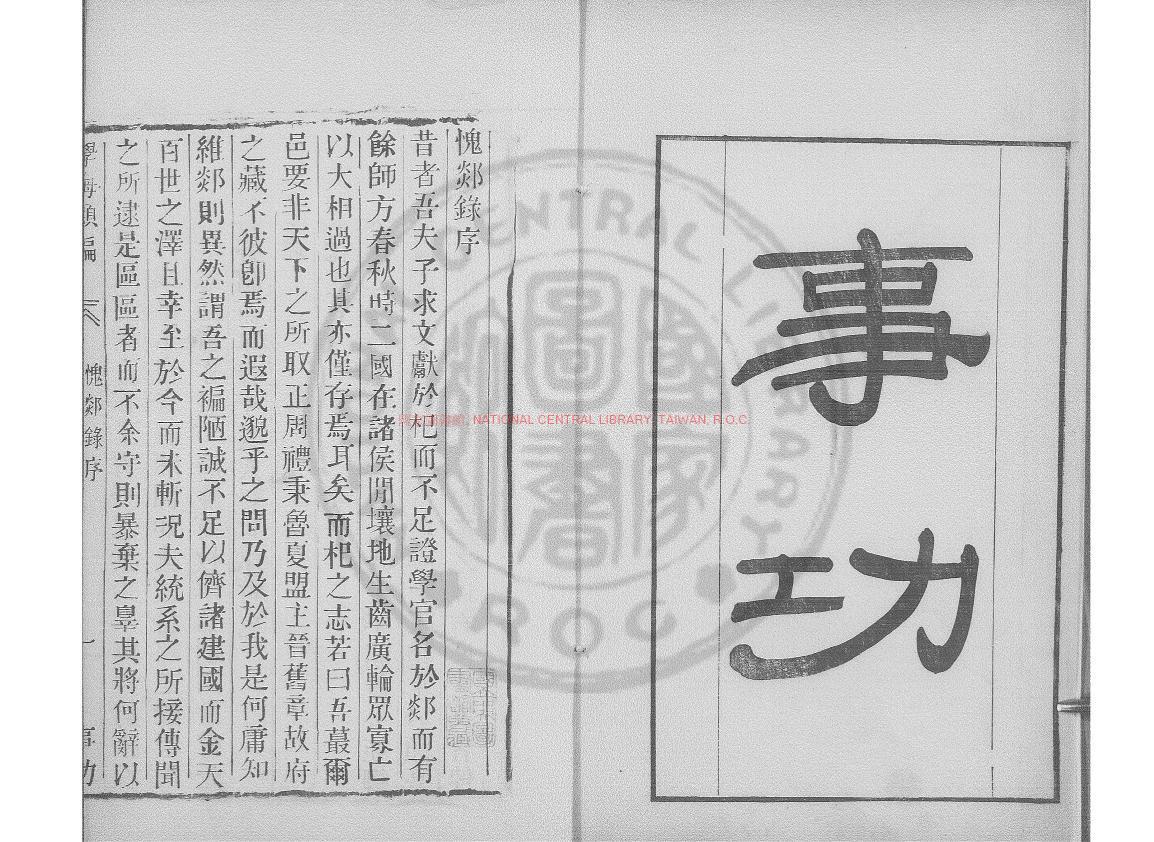 事功
愧郯錄序
昔者吾夫子求文獻於杞而不足證學官名於郯而有
餘師方春秋時二國在諸侯閒壤地生齒廣輪眾寡亡
以大相過也其亦僅存焉耳矣而杞之志若曰吾蕞爾
邑要非天下之所取正周禮秉魯夏盟主晉舊章故府
之藏不彼卽焉而遐哉邈乎之問乃及於我是何庸知
維郯則異然謂吾之褊陋誠不足以儕諸建國而金天
百世之澤且幸至於今而未斬況夫統系之所接傳聞
之所逮是區區者而不余守則暴棄之辠其將何辭以
學海類編 愧郯錄序 一 事功
NATIONAL CENTRAL LIBRARY, TAIWAN, R.O.C
NATIONAL CENTRAL LIBRARY
R.O.C
國家圖書館